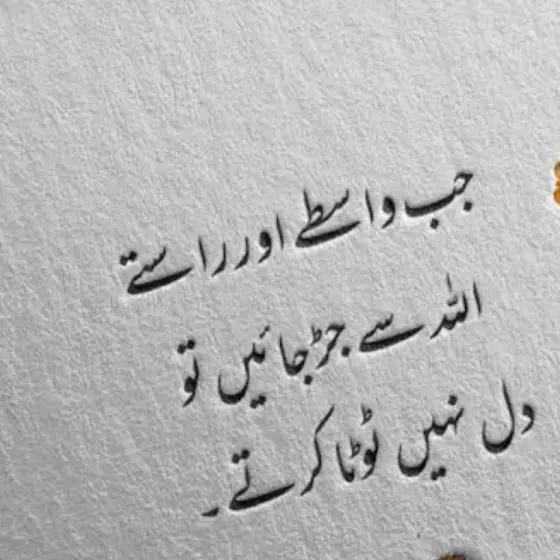 جب واسطے اور راستے
اللہ سے جڑ جائیں تو
دل نہیں ٹوٹا کرتے۔